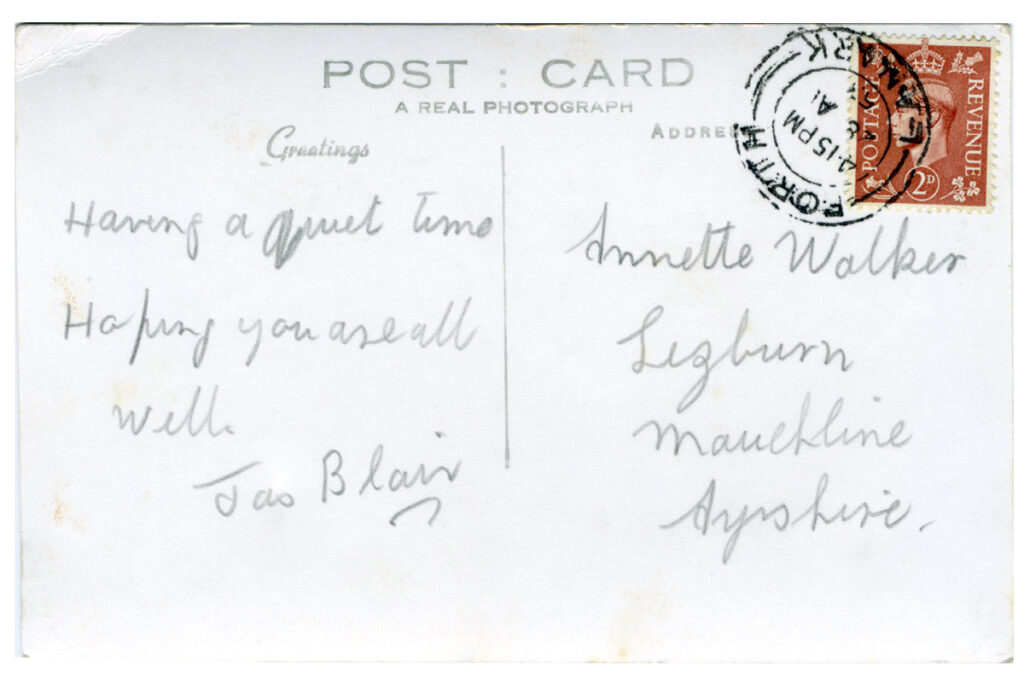 POST : CARD
A REAL PHOTOGRAPH
Greetings
Having a quiet time
Hoping you are all
well.
Jas Blair
ADDRE
Annette Walker
Mauchline
Ayrshire.
FORTH
LANARK
4.15 PM
POSTAGE
REVENUE
2D